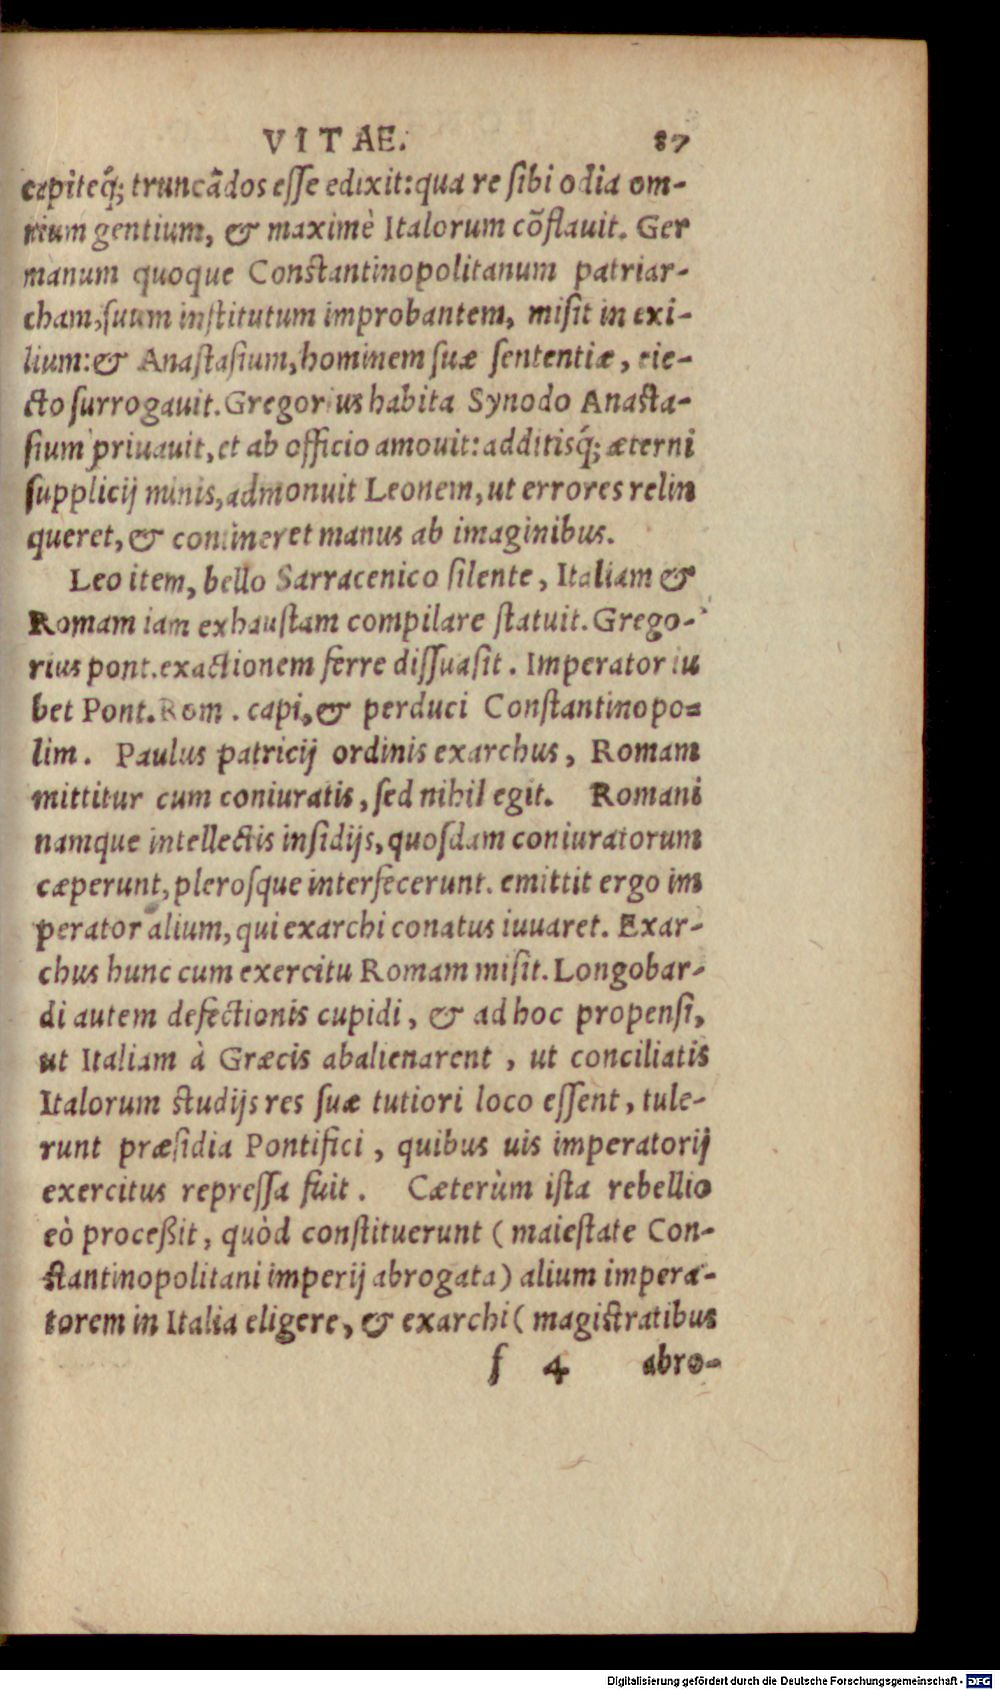 VITAE. 87
capiteq́; truncãdos esse edixit: qua re sibi odia om-
nium gentium, & maximè Italorum cõflauit. Ger
manum quoque Constantinopolitanum patriar-
cham, suum institutum improbantem, misit in exi-
lium: & Anastasium, hominem suæ sententiæ, eie-
cto surrogauit. Gregorius habita Synodo Anasta-
sium priuauit, et ab officio amouit: additisq́; æterni
supplicij minis, admonuit Leonem, ut errores relin
queret, & contineret manus ab imaginibus.
Leo item, bello Sarracenico silente, Italiam &
Romam iam exhaustam compilare statuit. Grego-
rius pont. exactionem ferre dissuasit. Imperator iu
bet Pont. Rom. capi, & perduci Constantinopo=
lim. Paulus patricij ordinis exarchus, Romam
mittitur cum coniuratis, sed nihil egit. Romani
namque intellectis insidijs, quosdam coniuratorum
cæperunt, plerosque interfecerunt. emittit ergo im
perator alium, qui exarchi conatus iuuaret. Exar-
chus hunc cum exercitu Romam misit. Longobar-
di autem defectionis cupidi, & ad hoc propensi,
ut Italiam à Græcis abalienarent, ut conciliatis
Italorum studijs res suæ tutiori loco essent, tule-
runt præsidia Pontifici, quibus uis imperatorij
exercitus repressa fuit. Cæterùm ista rebellio
eò proceßit, quòd constituerunt (maiestate Con-
stantinopolitani imperij abrogata) alium impera-
torem in Italia eligere, & exarchi (magistratibus
f 4 abro-
Digitalisierung gefördert durch die Deutsche Forschungsgemeinschaft - DFG